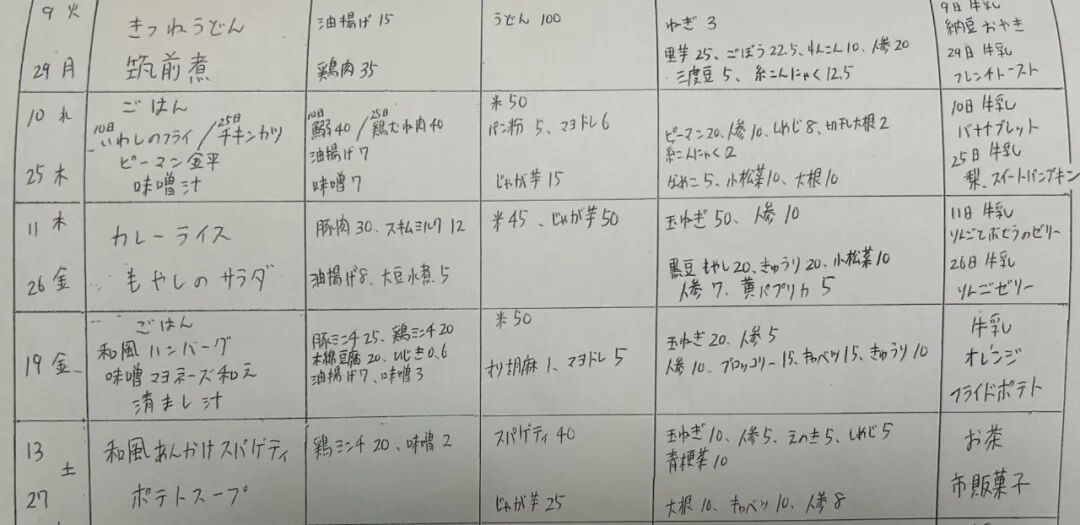 9 火
きつねうどん
油揚げ 15
うどん 100
ねぎ 3
9日 牛乳
納豆おやき
29 月
筑前煮
鶏肉 35
里芋 25、ごぼう 22.5、れんこん 10、人参 20
三度豆 5、糸こんにゃく 12.5
29日 牛乳
フレンチトースト
10 水
25 木
ごはん
10日 いわしのフライ / 25日 チキンカツ
ピーマン金平
味噌汁
10日 鰯 40 / 25日 鶏むね肉 40
油揚げ 7
味噌 7
米 50
パン粉 5、マヨドレ 6
じゃが芋 15
ピーマン 20、人参 10、しめじ 8、切干大根 2
糸こんにゃく 12
なめこ 5、小松菜 10、大根 10
10日 牛乳
バナナブレット
25日 牛乳
梨、スイートパンプキン
11 木
26 金
カレーライス
もやしのサラダ
豚肉 30、スキムミルク 12
油揚げ 8、大豆水煮 5
米 45、じゃが芋 50
玉ねぎ 50、人参 10
黒豆もやし 20、きゅうり 20、小松菜 10
人参 7、黄パプリカ 5
11日 牛乳
りんごとぶどうのゼリー
26日 牛乳
りんごゼリー
19 金
ごはん
和風ハンバーグ
味噌マヨネーズ和え
清まし汁
豚ミンチ 25、鶏ミンチ 20
木綿豆腐 20、ひじき 0.6
油揚げ 7、味噌 3
米 50
すり胡麻 1、マヨドレ 5
玉ねぎ 20、人参 5
人参 10、ブロッコリー 15、キャベツ 15、きゅうり 10
牛乳
オレンジ
フライドポテト
13 土
27
和風あんかけスパゲティ
ポテトスープ
鶏ミンチ 20、味噌 2
スパゲティ 40
じゃが芋 25
玉ねぎ 10、人参 5、えのき 5、しめじ 5
青梗菜 10
大根 10、キャベツ 10、人参 8
お茶
市販菓子